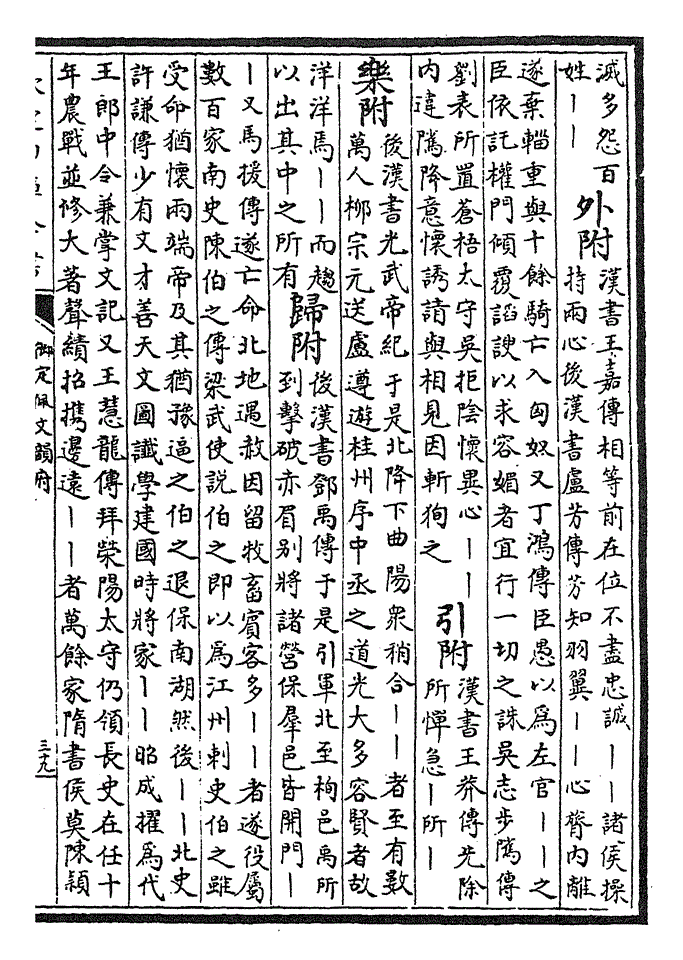 滅多怨百
姓丨丨
外附
漢書王嘉傳相等前在位不盡忠誠丨丨諸侯操
持兩心後漢書盧芳傳芳知羽翼丨丨心膂内離
遂棄輜重與十餘騎亡入匈奴又丁鴻傳臣愚以爲左官丨丨之
臣依託權門傾覆諂諛以求容媚者宜行一切之誅吳志步隲傳
劉表所置蒼梧太守吳拒陰懷異心丨丨
内違隲降意懷誘請與相見因斬狥之
引附
漢書王莽傳先除
所憚急丨所丨
樂附
後漢書光武帝紀于是北降下曲陽衆稍合丨丨者至有數
萬人柳宗元送盧遵遊桂州序中丞之道光大多容賢者故
洋洋焉丨丨而趨
以出其中之所有
歸附
後漢書鄧禹傳于是引軍北至栒邑禹所
到擊破赤眉别將諸營保羣邑皆開門丨
丨又馬援傳遂亡命北地遇赦因留牧畜賓客多丨丨者遂役屬
數百家南史陳伯之傳梁武使説伯之即以爲江州刺史伯之雖
受命猶懷兩端帝及其猶豫逼之伯之退保南湖然後丨丨北史
許謙傳少有文才善天文圖讖學建國時將家丨丨昭成擢爲代
王郎中令兼掌文記又王慧龍傳拜滎陽太守仍領長史在任十
年農戰並修大著聲績招攜邊遠丨丨者萬餘家隋書侯莫陳穎
御定佩文韻府
三十九